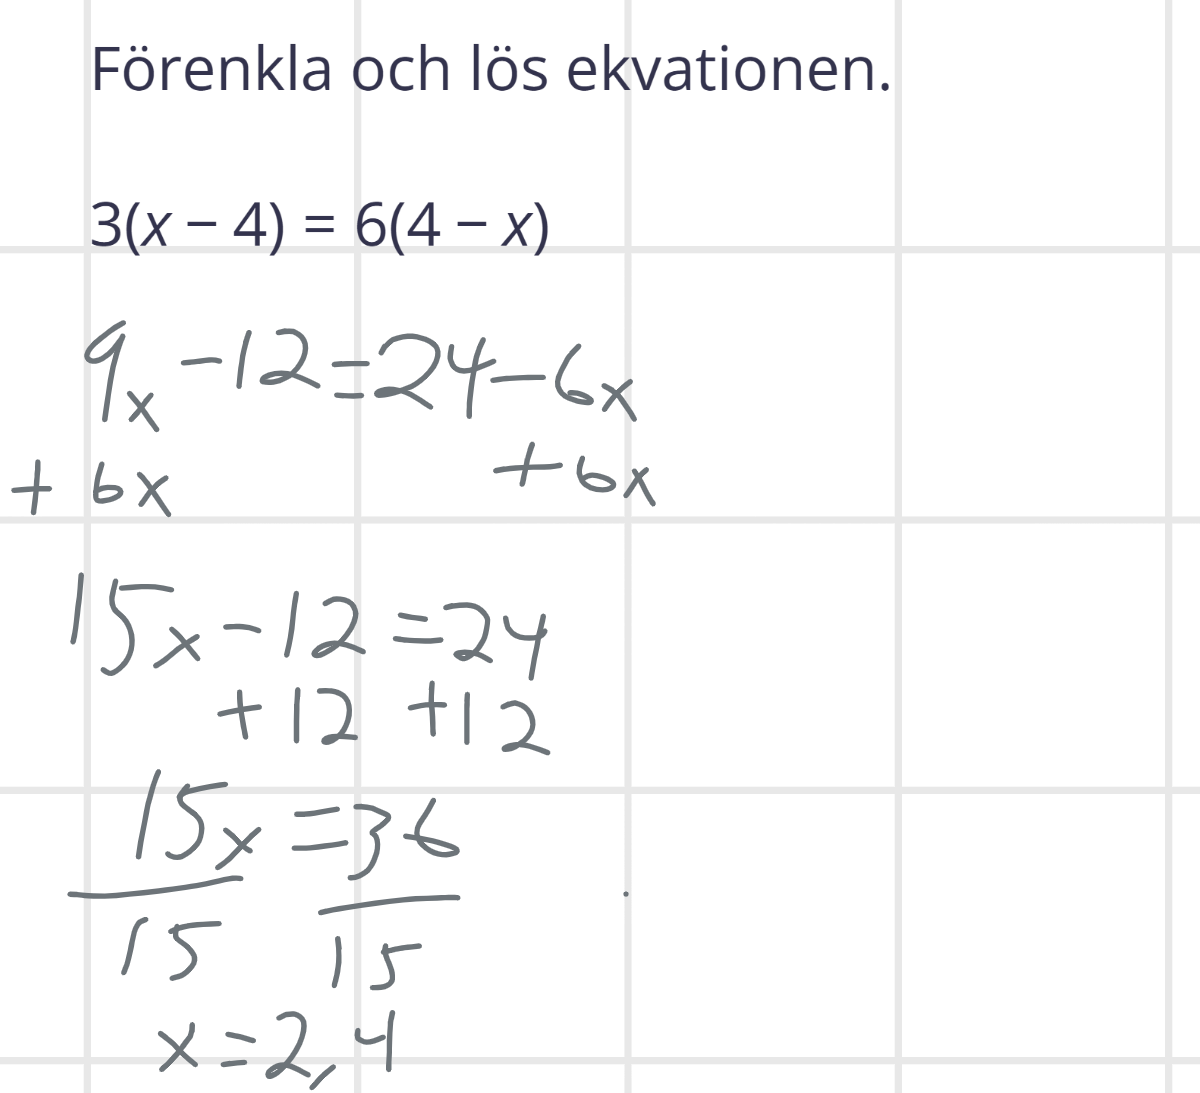 Förenkla och lös ekvationen.
3(x − 4) = 6(4 − x)
9x -12=24-6x
+ 6x +6x
15x-12=24
+12 +12
15x=36
15 15
x=2,4